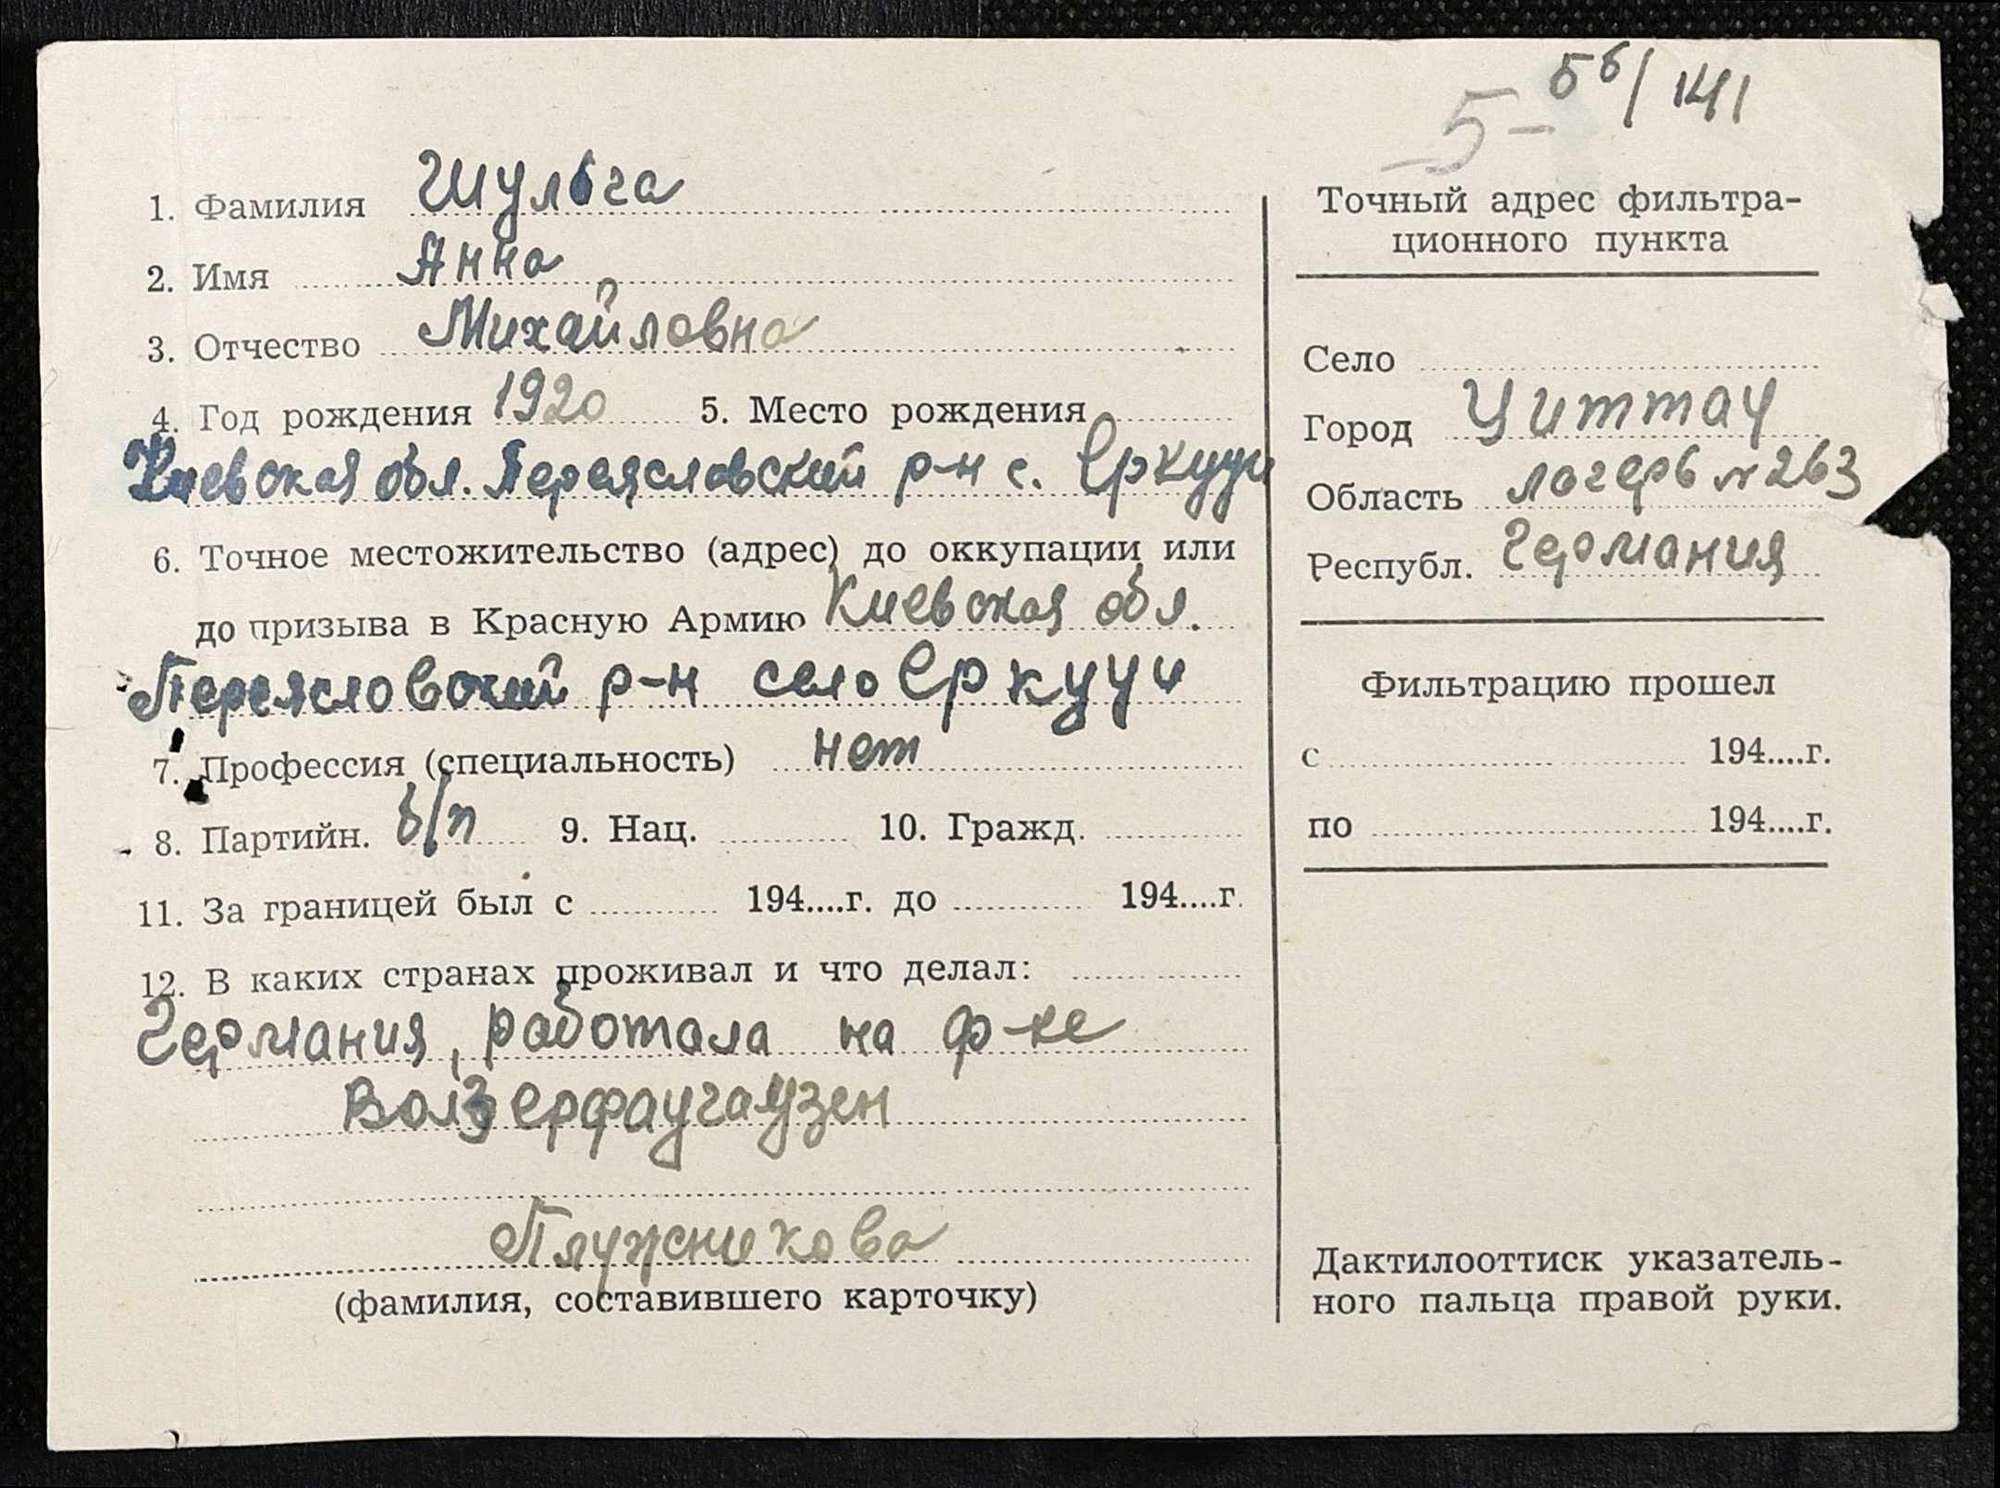 5-56/141
1. Фамилия Шульга
2. Имя Анна
3. Отчество Михайловна
4. Год рождения 1920 5. Место рождения
Киевская обл. Переясловский р-н с. Еркуци
6. Точное местожительство (адрес) до оккупации или
до призыва в Красную Армию Киевская обл.
Переясловский р-н село Еркуци
7. Профессия (специальность) нет
8. Партийн. б/п 9. Нац. 10. Гражд.
11. За границей был с 194....г. до 194....г.
12. В каких странах проживал и что делал:
Германия, работала на ф-ке
Волзерфаугаузен
Плужникова
(фамилия, составившего карточку)
Точный адрес фильтра-
ционного пункта
Село
Город Циттау
Область лагерь № 263
Республ. Германия
Фильтрацию прошел
с 194....г.
по 194....г.
Дактилооттиск указатель-
ного пальца правой руки.